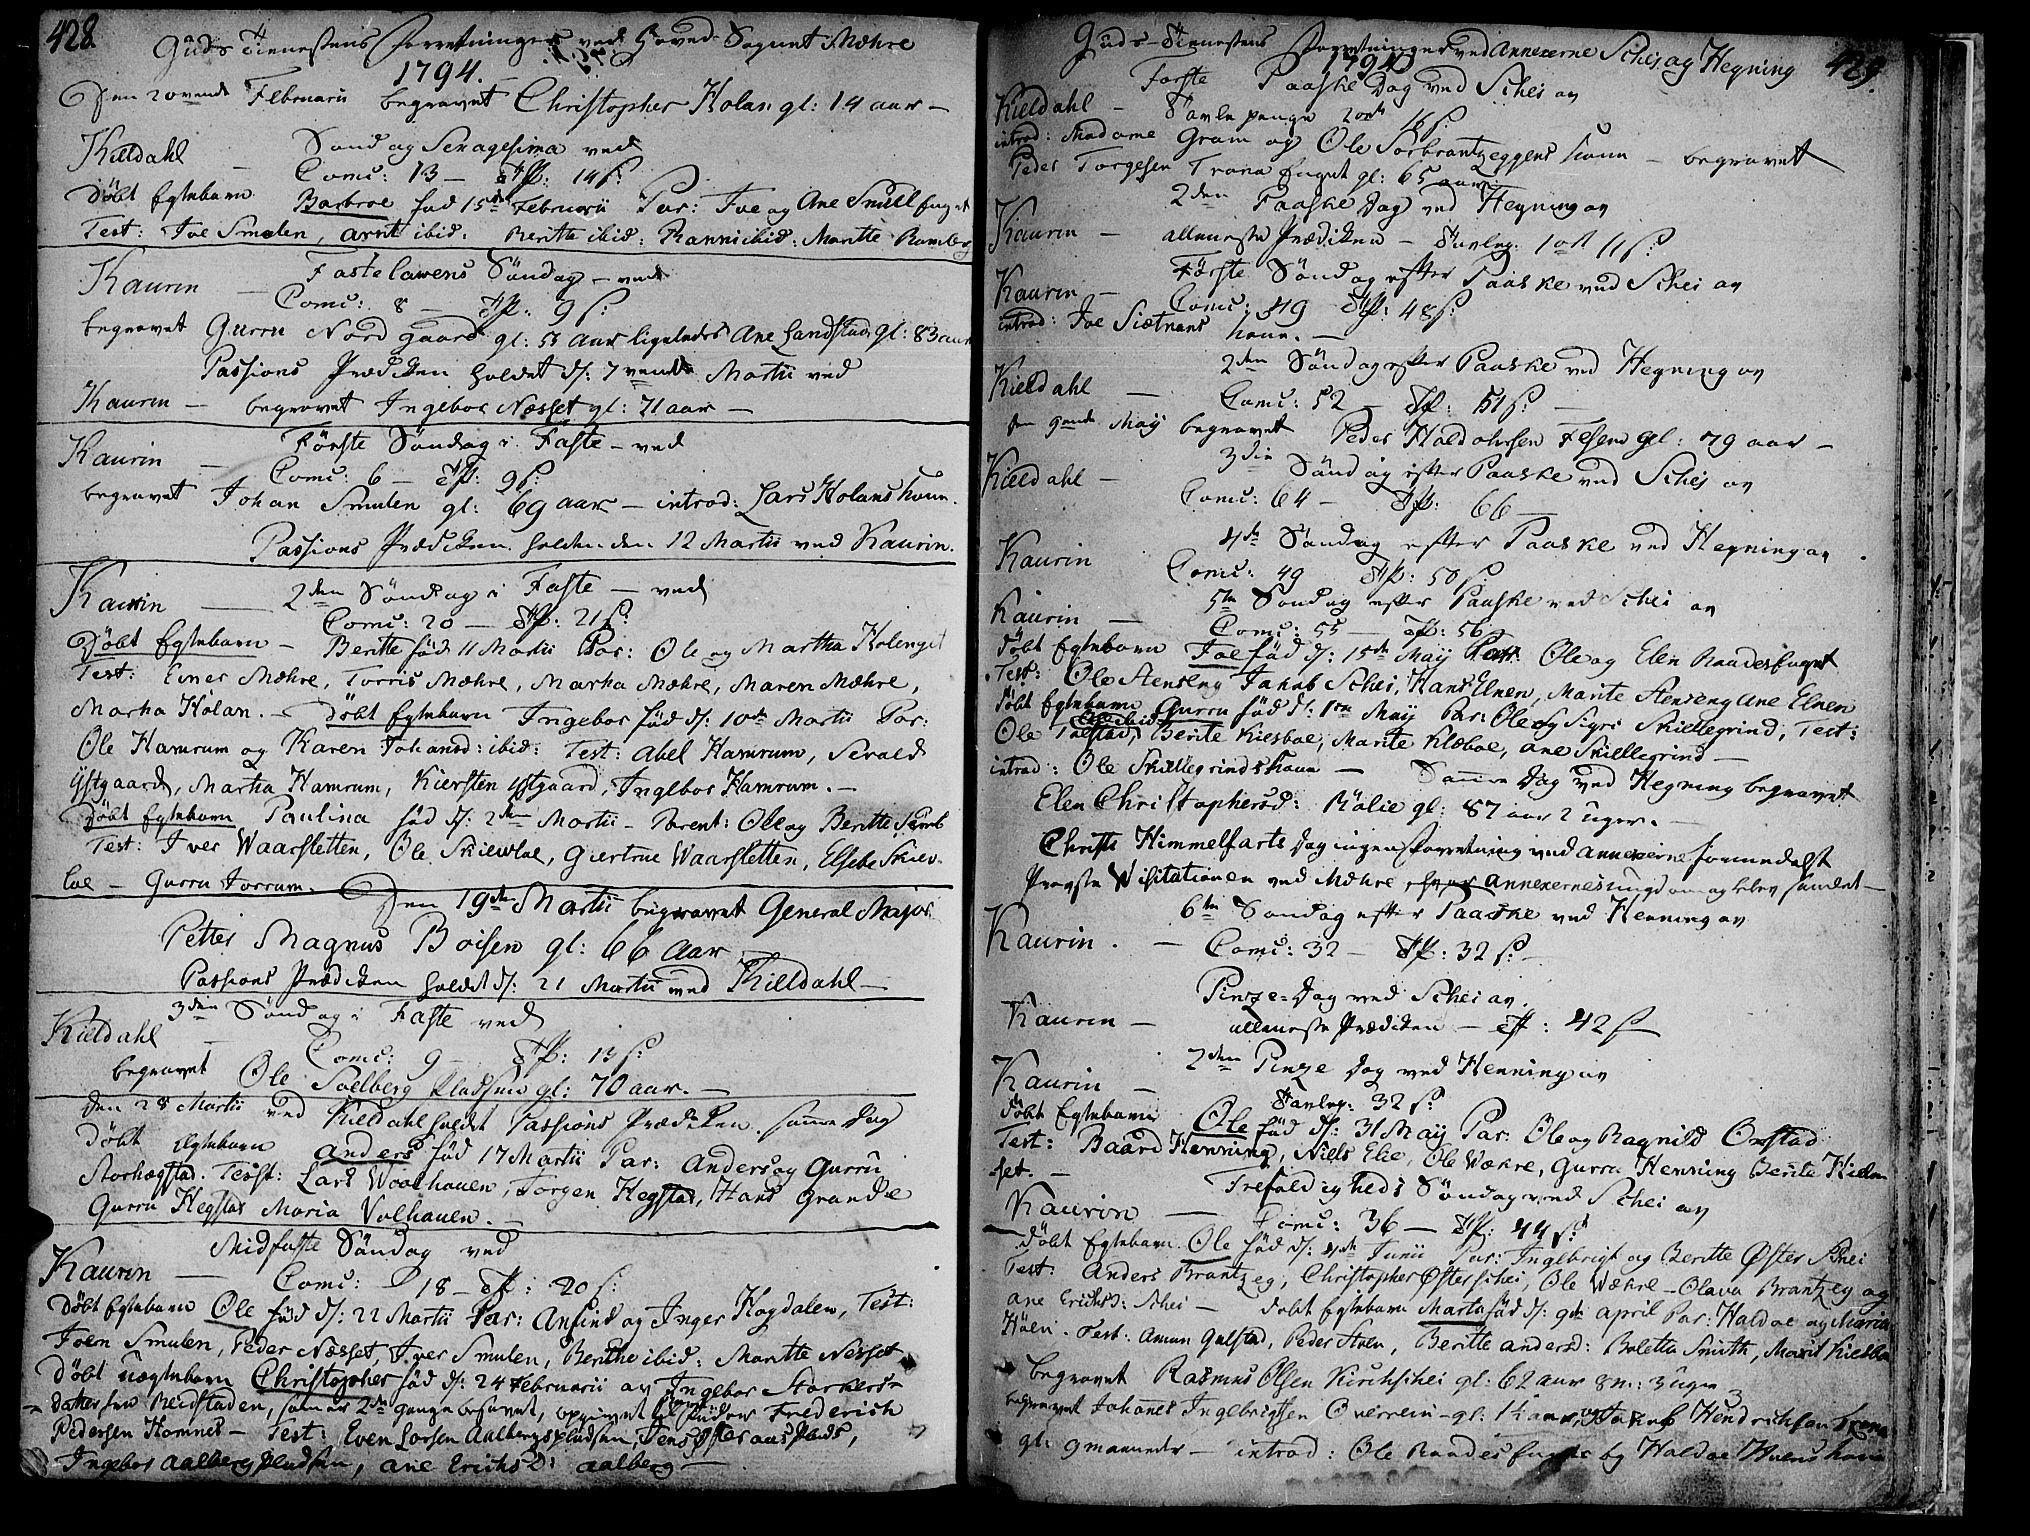 428
Guds Tienestens Forretninger ved Hoved Sognet Mæhre
1794.
Den 20vende Februarii begravet Christopher Holan gl: 14 aar –
Kieldahl – Søndag Sexagesima ved
Comu: 13 – Off: 14 s:
Døbt Egtebarn Barbroe fød 15de Februarii Par: Joe og Ane Smull
Test: Joe Smulen, Arnt ibid: Beritte ibid: Ranni ibid: Maritte
Kaurin – Fastelavens Søndag – ved
Comu: 8 – Off: 9 s:
begravet Gurru Nordgaard gl: 55 aar ligeledes Ane Landstad gl: 83 aar
Passions Prædiken holdet d: 7vende Martii ved
Kaurin – begravet Ingebor Næsset gl: 71 aar –
Første Søndag i Faste – ved
Kaurin – Comu: 6 – Off: 9 s:
begravet Johan Smulen gl: 69 aar – introd: Lars Holans kone.
Passions Prædiken holden den 12 Martii ved Kaurin.
2den Søndag i Faste – ved
Kaurin – Comu: 20 – Off: 21 s:
Døbt Egtebarn – Beritte fød 11 Martii Par: Ole og Martha Holenget
Test: Ener Mæhre, Torris Mæhre, Marha Mæhre, Maren Mæhre,
Marha Holan. – Døbt Egtebarn Ingebor fød d: 10de Martii Par:
Ole Hamrum og Karen Johansd: ibid: Test: Abel Hamrum, Sevald
Ystgaard, Martha Hamrum, Kiersten Ystgaard, Ingebor Hamrum. –
Døbt Egtebarn Paulina fød d: 2den Martii – Parent: Ole og Beritte
Test: Iver Waarsletten, Ole Skiewloe, Giertrue Waarsletten, Elsebe Skiev-
loe – Gurru Jorrum.
Den 19de Martii begravet General Major
Petter Magnus Boisen gl: 66 Aar
Passions Prædiken holdet d: 21 Martii ved Kieldahl –
3die Søndag i Faste ved
Kieldahl – Comu: 9 – Off: 13 s:
begravet Ole Soelberg Pladsen gl: 70 aar. –
Den 28 Martii ved Kieldahl holdet Passions Prædiken. samme Dag
Døbt Egtebarn Anders fød 17 Martii Par: Anders og Gurru
Storhegstad. Test: Lars Woolhauen, Torgen Hegstad, Hans Grande
Gurru Hegstad Maria Valhauen. –
Midfaste Søndag ved
Kaurin – Comu: 18 – Off: 20 s:
Døbt Egtebarn Ole fød d: 22 Martii Par: Anfind og Inger Hogdalen, Test:
Joen Smulen, Peder Næsset, Iver Smulen, Berthe ibid: Maritte Nesset
Døbt uægtebarn Christopher fød d: 24 Februarii av Ingebor Storkers-
datter Reidstaden, som er 2den gange besovet, opgivet til Barnefader Frederich
Pedersen Homnes – Test: Even Larsen Aalbergspladsen, Jens
Ingebor Aalbergspladsen, Ane Erichsd: Aalberg –
Guds-Tienestens Forretninger ved Annexerne Schei og Hegning 429.
1794
Første Paaske Dag ved Schei av
Kieldahl – Tavle penge 16 s:
introd: Madame Gram og Ole Sorbrantzeggens kone – begravet
Peder Torgesen Trana Enget gl: 65 aar
2den Paaske Dag ved Hegning av
Kaurin – alleneste Prædiken – Tavlep: 1 ort 11 s:
Første Søndag efter Paaske ved Schei av
Kaurin – Comu: 49 Off: 48 s:
introd: Joe Siætnans kone. –
2den Søndag efter Paaske ved Hegning av
Kieldahl – Comu: 52 – Off: 51 s: –
den 9ende Maij begravet Peder Haldohrsen gl: 79 aar –
3die Søndag efter Paaske ved Schei av
Kieldahl – Comu: 64 – Off: 66 –
4de Søndag efter Paaske ved Hegning av
Kaurin Comu: 49 Off: 50 s:
5te Søndag efter Paaske ved Schei av
Kaurin – Comu: 55 – Off: 56
Døbt Egtebarn Joe fød d: 15de Maij Par: Ole og Elen Raadesenget
Test: Ole Stenseng Jakob Schei, Hans Elnen, Marite Stenseng Ane Elnen
Døbt Egtebarn Gurru fød d: Maij Par: Ole og Sigri Skiellegrind, Test:
Ole Tolstad, Berite Kiesboe, Marite Klæboe, Ane Skiellegrind –
introd: Ole Skillegrinds kone – Samme Dag ved Hegning begravet
Elen Christophersd: Rølie gl: 87 aar 2 uger. –
Christi Himmelfarts Dag ingen Forretning ved Annexerne formedelst
Provste Visitationen ved Mæhre, hvor Annexernes ungdom og blev samlet –
6te Søndag efter Paaske ved Henning av
Kaurin. – Comu: 32 – Off: 32 s: –
Pinze-Dag ved Schei av.
Kaurin – alleneste Prædiken – Off: 42 s
2den Pinze Dag ved Henning av
Kaurin – Tavlep: 32 s:
Døbt Egtebarn Ole fød d: 31 Maij Par: Ole og Ragnild Oxstad
Test: Baard Henning, Niels Elie, Ole Wæhre, Gurru Henning Berite
set. –
Trefoldigheds Søndag ved Schei av
Kaurin – Comu: 36 – Off: 44 s:
Døbt Egtebarn Ole fød d: 4de Junii Par: Ingebrigt og Beritte Øster Schei
Test: Anders Brantzeg, Christopher Østerschei, Ole Wæhre – Olava Brantzeg og
Ane Erichsd: Schei – Døbt Egtebarn Marta fød d: 9de April Par: Haldoe og Maria
Høen. Test: Amun Gulstad, Peder Stoen, Beritte Andersd: Boletta Smith, Marit Kiesboe
begravet Rasmus Olsen Kirchschei gl: 62 aar 8 m: 3 uger
begravet Johanes Ingebrigtsen Overrein – gl: 1½ aar, og Jakob Hendrichsen
gl: 9 maaneder – introd: Ole Raadesengets og Haldoe Høens kone